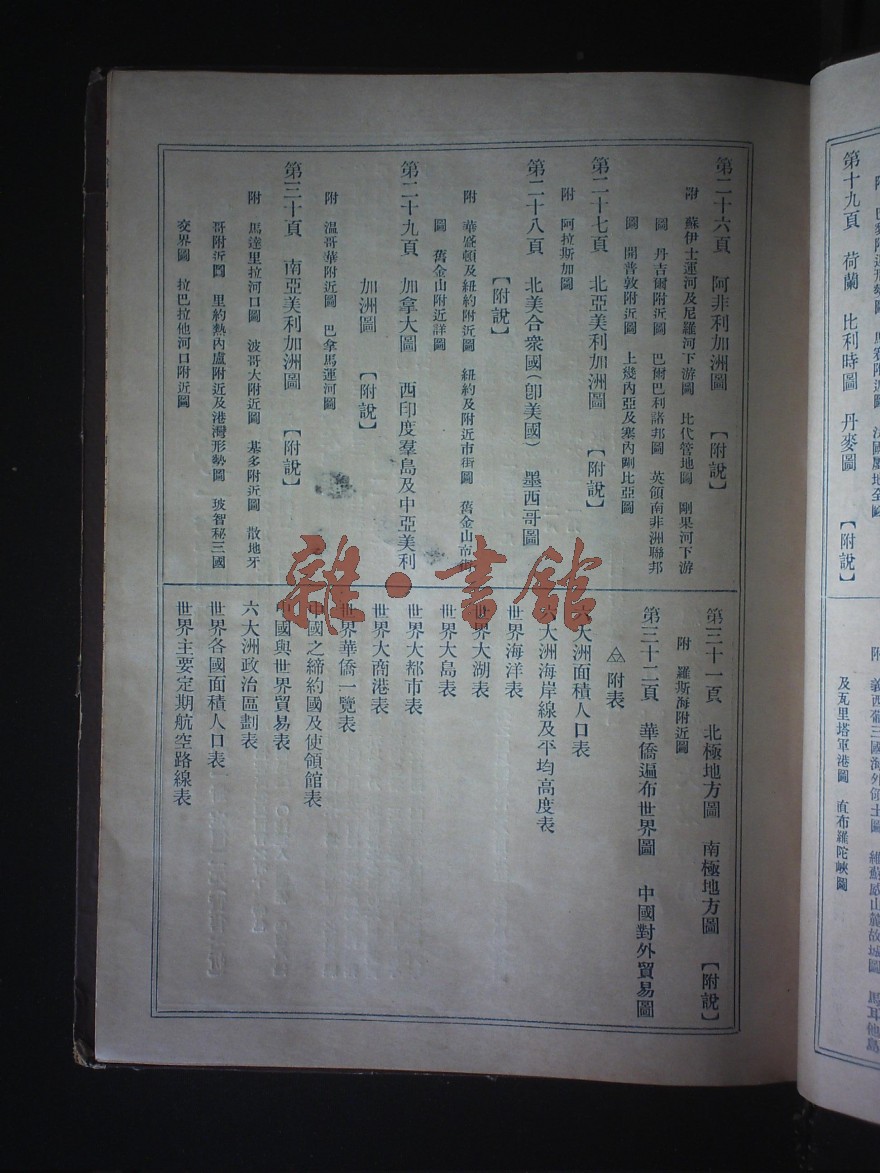 第十九頁　荷蘭　比利時圖　丹麥圖　【附說】
及瓦里塔軍港圖　直布羅陀峽圖
第二十六頁　阿非利加洲圖　【附說】
附　蘇伊士運河及尼羅河下游圖　比代管地圖　剛果河下游
圖　丹吉爾附近圖　巴爾巴利諸邦圖　英領南非洲聯邦
圖　開普敦附近圖　上幾內亞及塞內剛比亞圖
第二十七頁　北亞美利加洲圖　【附說】
附　阿拉斯加圖
第二十八頁　北美合衆國（卽美國）　墨西哥圖
【附說】
附　華盛頓及紐約附近圖　紐約及附近市街圖　舊金山市街
圖　舊金山附近詳圖
第二十九頁　加拿大圖　西印度羣島及中亞美利
加洲圖　【附說】
附　溫哥華附近圖　巴拿馬運河圖
第三十頁　南亞美利加洲圖　【附說】
附　馬達里拉河口圖　波哥大附近圖　基多附近圖　散地牙
哥附近圖　里約熱內盧附近及港灣形勢圖　玻智秘三國
交界圖　拉巴拉他河口附近圖
第三十一頁　北極地方圖　南極地方圖　【附說】
附　羅斯海附近圖
第三十二頁　華僑遍布世界圖　中國對外貿易圖
附表
六大洲面積人口表
六大洲海岸線及平均高度表
世界海洋表
世界大湖表
世界大島表
世界大都市表
世界大商港表
世界華僑一覽表
中國之締約國及使領館表
中國與世界貿易表
六大洲政治區劃表
世界各國面積人口表
世界主要定期航空路線表
雜·書館